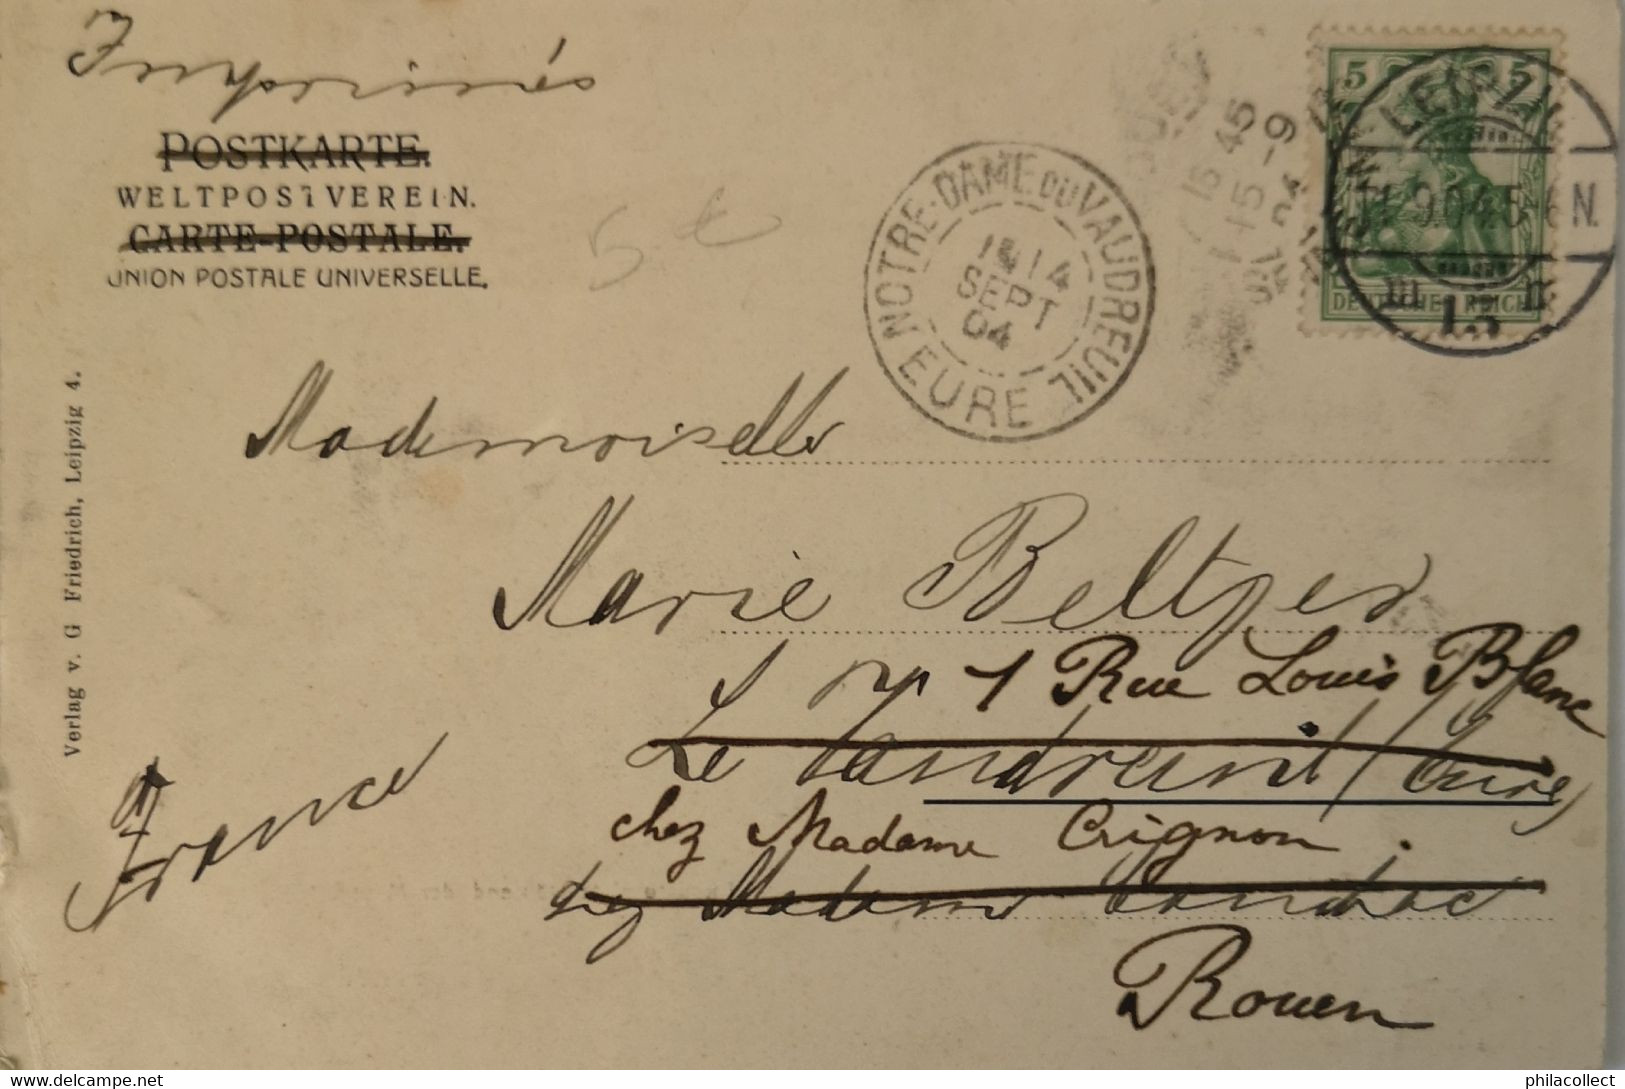 Imprimés
POSTKARTE.
WELTPOSTVEREIN.
CARTE-POSTALE.
UNION POSTALE UNIVERSELLE.
5
5 5
DEUTSCHES REICH
LEIPZIG
11.9.04.5-6N.
13
NOTRE-DAME DU VAUDREUIL
14
SEPT
04
EURE
15 45
15 -9
04
Verlag v. G Friedrich, Leipzig 4.
Mademoiselle
Marie Beltzer
1 Rue Louis Blanc
Le Vaudreuil (Eure)
chez Madame Crignon.
chez Madame
Rouen
France
philacollect - delcampe.net